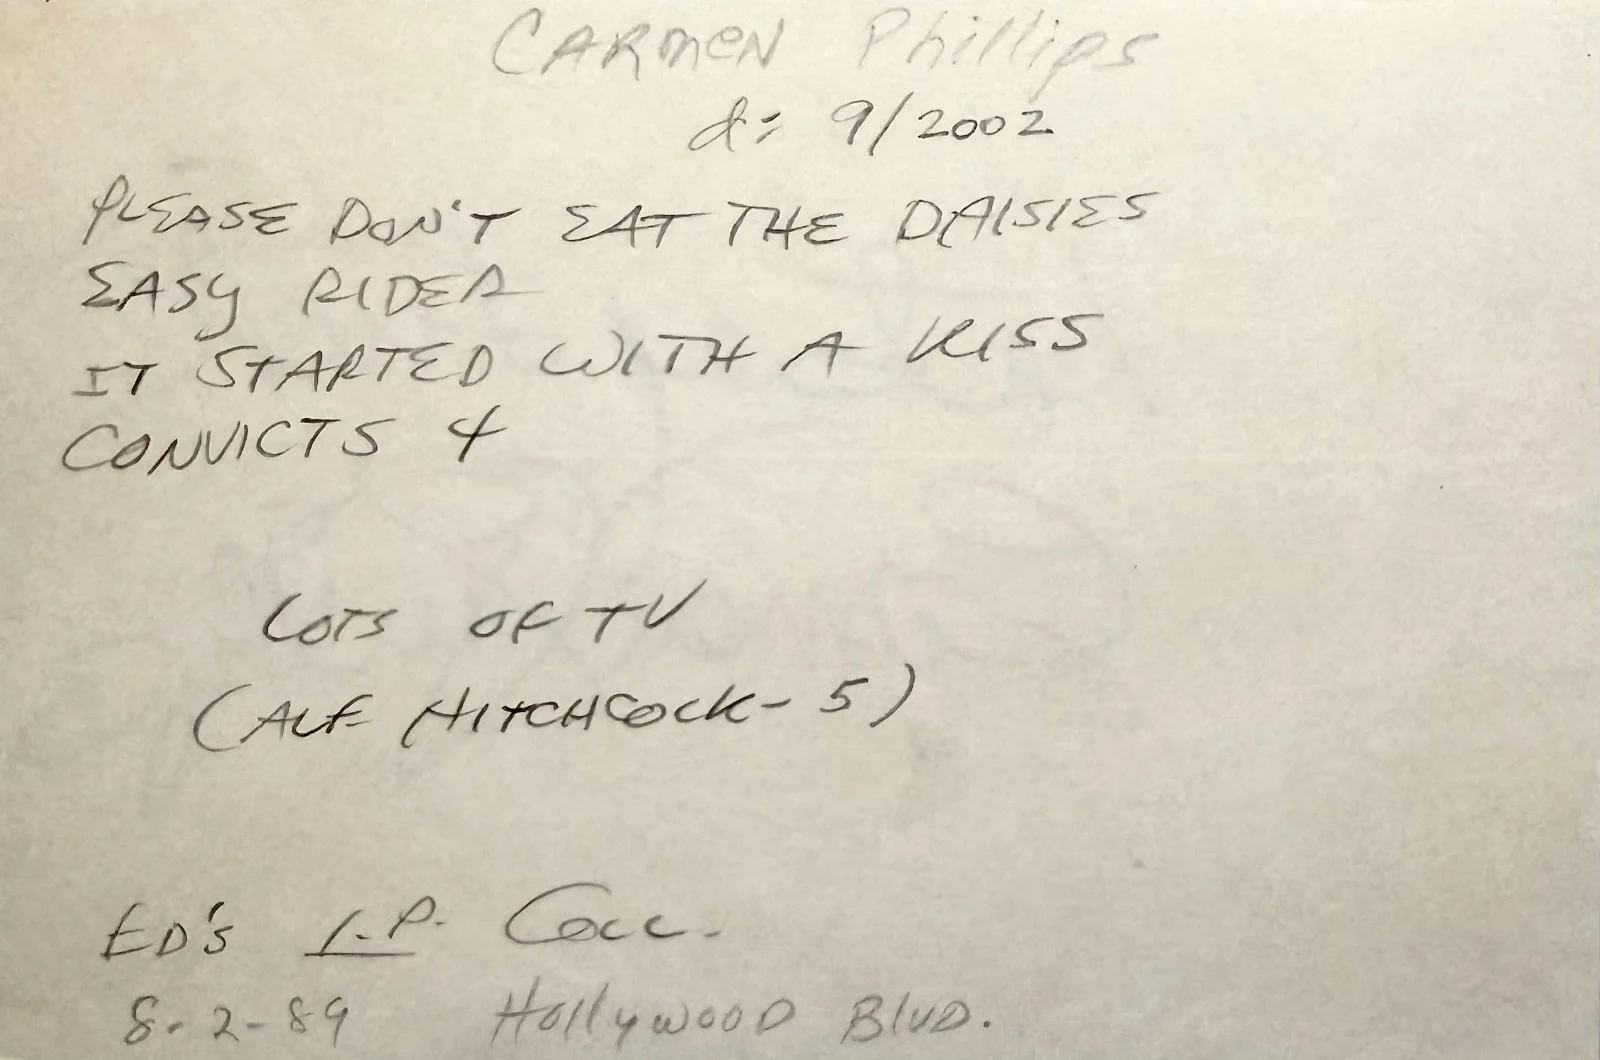 CARMEN Phillips
d: 9/2002
PLEASE DON'T EAT THE DAISIES
EASY RIDER
IT STARTED WITH A KISS
CONVICTS 4
LOTS OF TV
(ALF HITCHCOCK - 5)
ED'S I.P. COLL.
8-2-89 Hollywood Blvd.